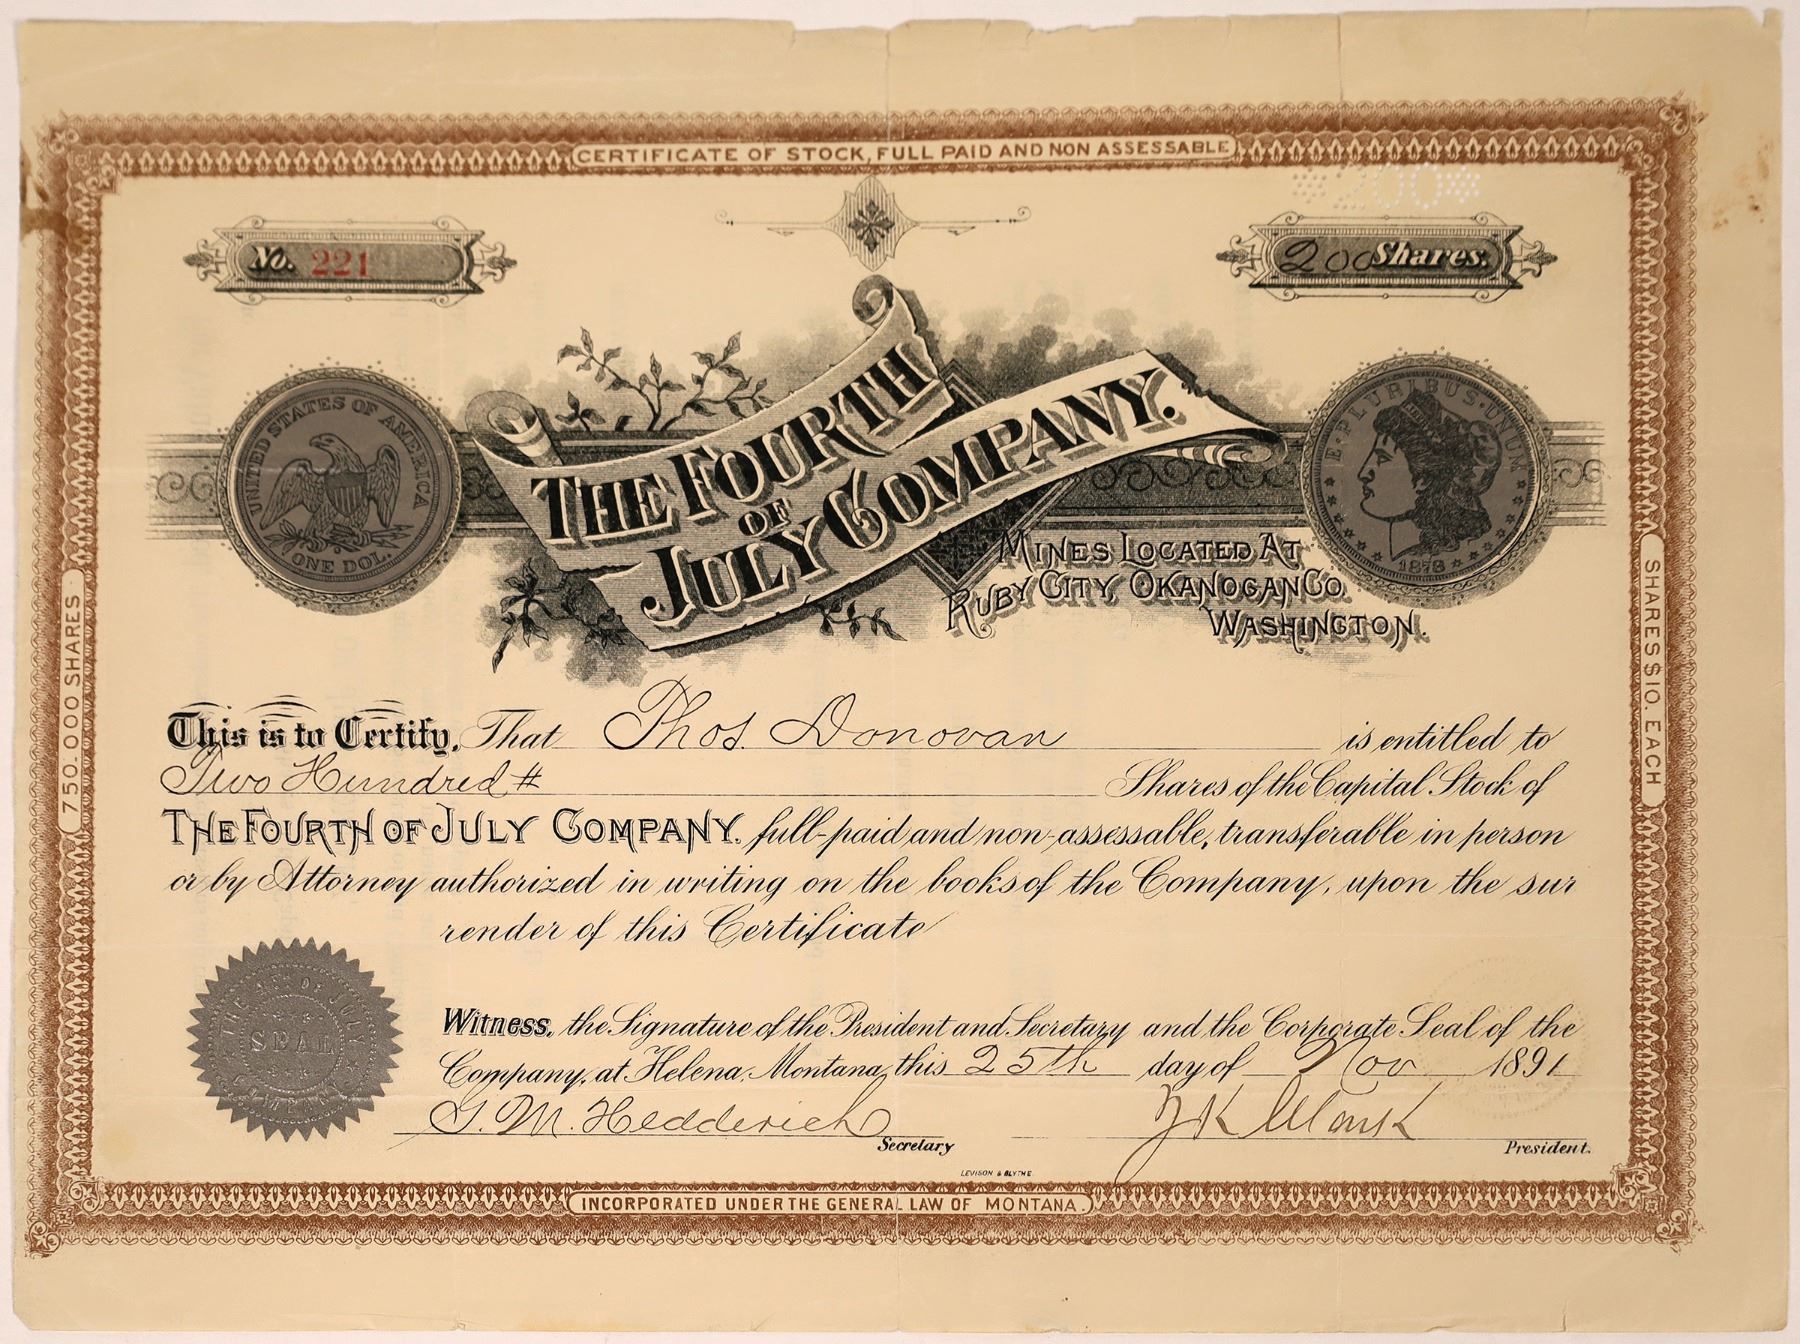 CERTIFICATE OF STOCK, FULL PAID AND NON ASSESSABLE
*200*
No. 221
200 Shares.
UNITED STATES OF AMERICA
ONE DOL.
THE FOURTH
OF
JULY COMPANY.
E·PLURIBUS·UNUM
1878
MINES LOCATED AT
RUBY CITY, OKANOGAN CO.
WASHINGTON.
750.000 SHARES
SHARES $10. EACH
This is to Certify, That Thos. Donovan is entitled to
Two Hundred # Shares of the Capital Stock of
THE FOURTH OF JULY COMPANY. full-paid and non-assessable, transferable in person
or by Attorney authorized in writing on the books of the Company, upon the sur
render of this Certificate
SEAL
COMPANY
Witness, the Signature of the President and Secretary and the Corporate Seal of the
Company, at Helena, Montana, this 25th day of Nov 1891
G. M. Hedderich
Secretary
President.
LEVISON & BLYTHE
INCORPORATED UNDER THE GENERAL LAW OF MONTANA.